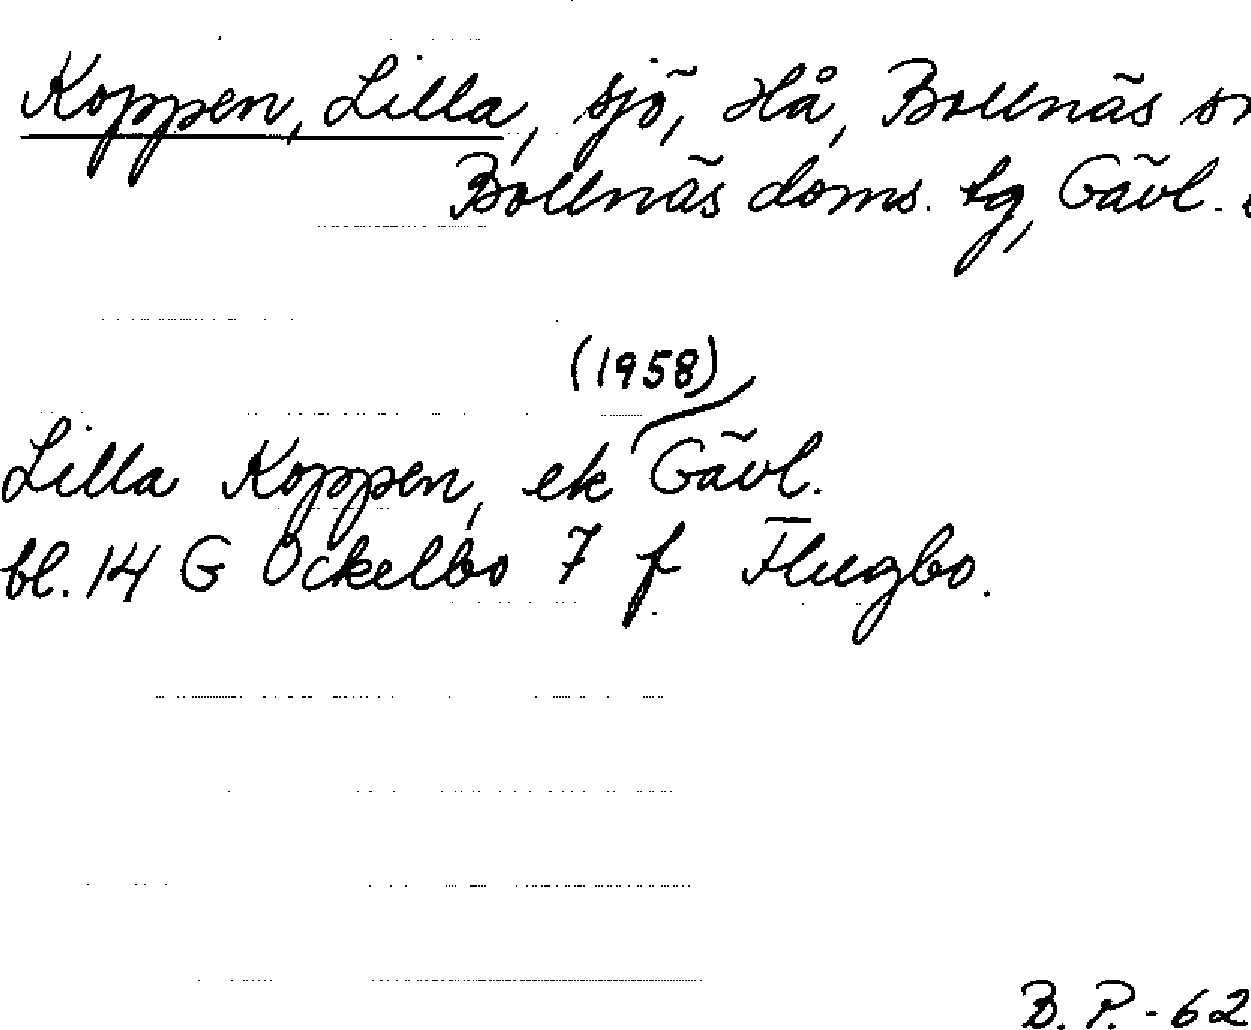 Koppen, Lilla, sjö, Hå, Bollnäs sn
Bollnäs doms. tg, Gävl.
(1958)
Lilla Koppen, ek Gävl.
bl. 14 G Ockelbo 7 f Flugbo.
B. P. - 62